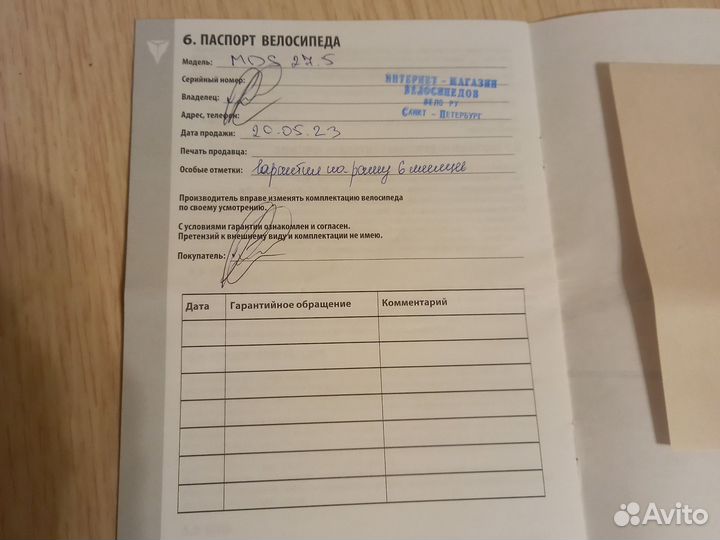 6. ПАСПОРТ ВЕЛОСИПЕДА
Модель: MDS 27.5
Серийный номер:
Владелец:
Адрес, телефон:
Дата продажи: 20.05.23
Печать продавца:
Особые отметки: гарантия на раму 6 месяцев
ИНТЕРНЕТ - МАГАЗИН
ВЕЛОСИПЕДОВ
ВЕЛО РУ
САНКТ - ПЕТЕРБУРГ
Производитель вправе изменять комплектацию велосипеда
по своему усмотрению.
С условиями гарантии ознакомлен и согласен.
Претензий к внешнему виду и комплектации не имею.
Покупатель:
Дата Гарантийное обращение Комментарий
Avito